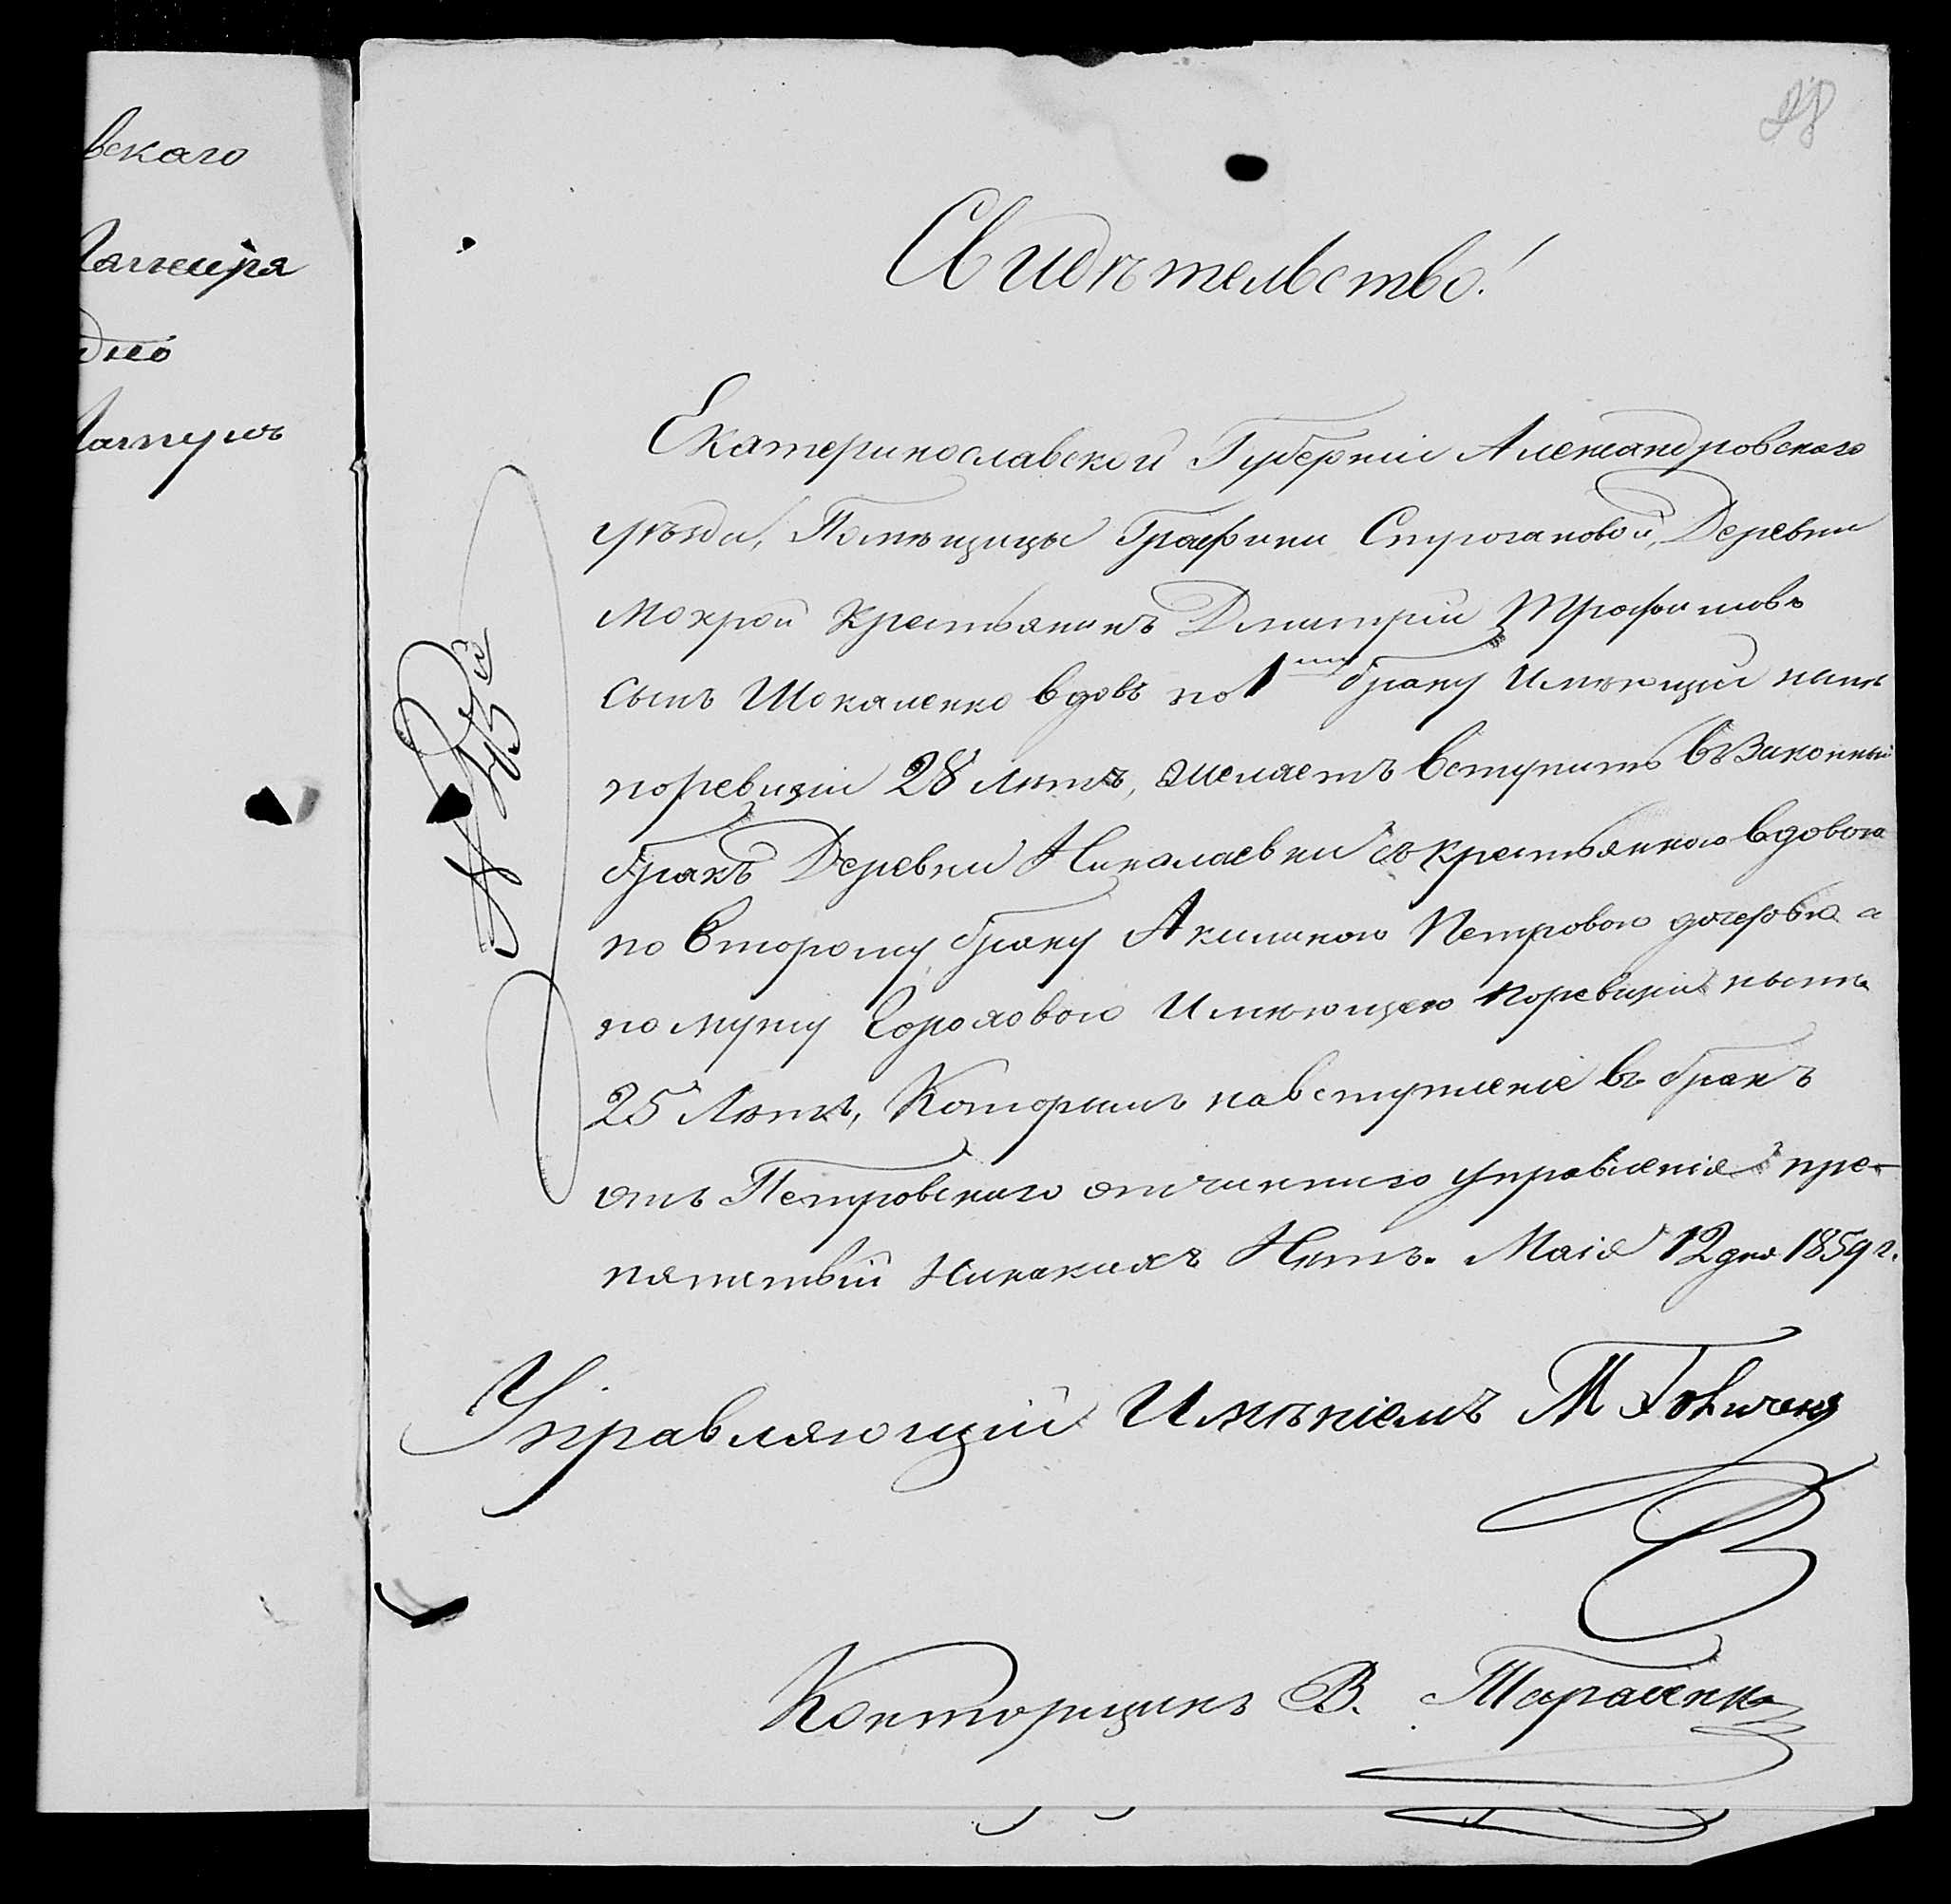 вскаго
дно
28
Свидѣтельство!
Екатеринославской Губерніи Александровскаго
уѣзда, Помѣщицы Графини Строгановой, Деревни
Мокрой Крестьянинъ Дмитрій Трофимовъ
сынъ Шокаленко вдовъ по 1му браку имѣющій нынѣ
поревизіи 28 лѣтъ, желяетъ вступить взаконный
бракъ Деревни Николаевки съкрестьянкою вдовою
по второму браку Акилиною Петровою дочерью а
помужу Гороховою имѣющею поревизіи нынѣ
25 Лѣтъ, Которымъ навступленіе въ бракъ
отъ Петровскаго отчиннаго управленія пре-
пятствій Никакихъ Нѣтъ. Маія 12 дня 1859 г.
Управляющій Имѣніемъ М
Конторщикъ В. Тараненко